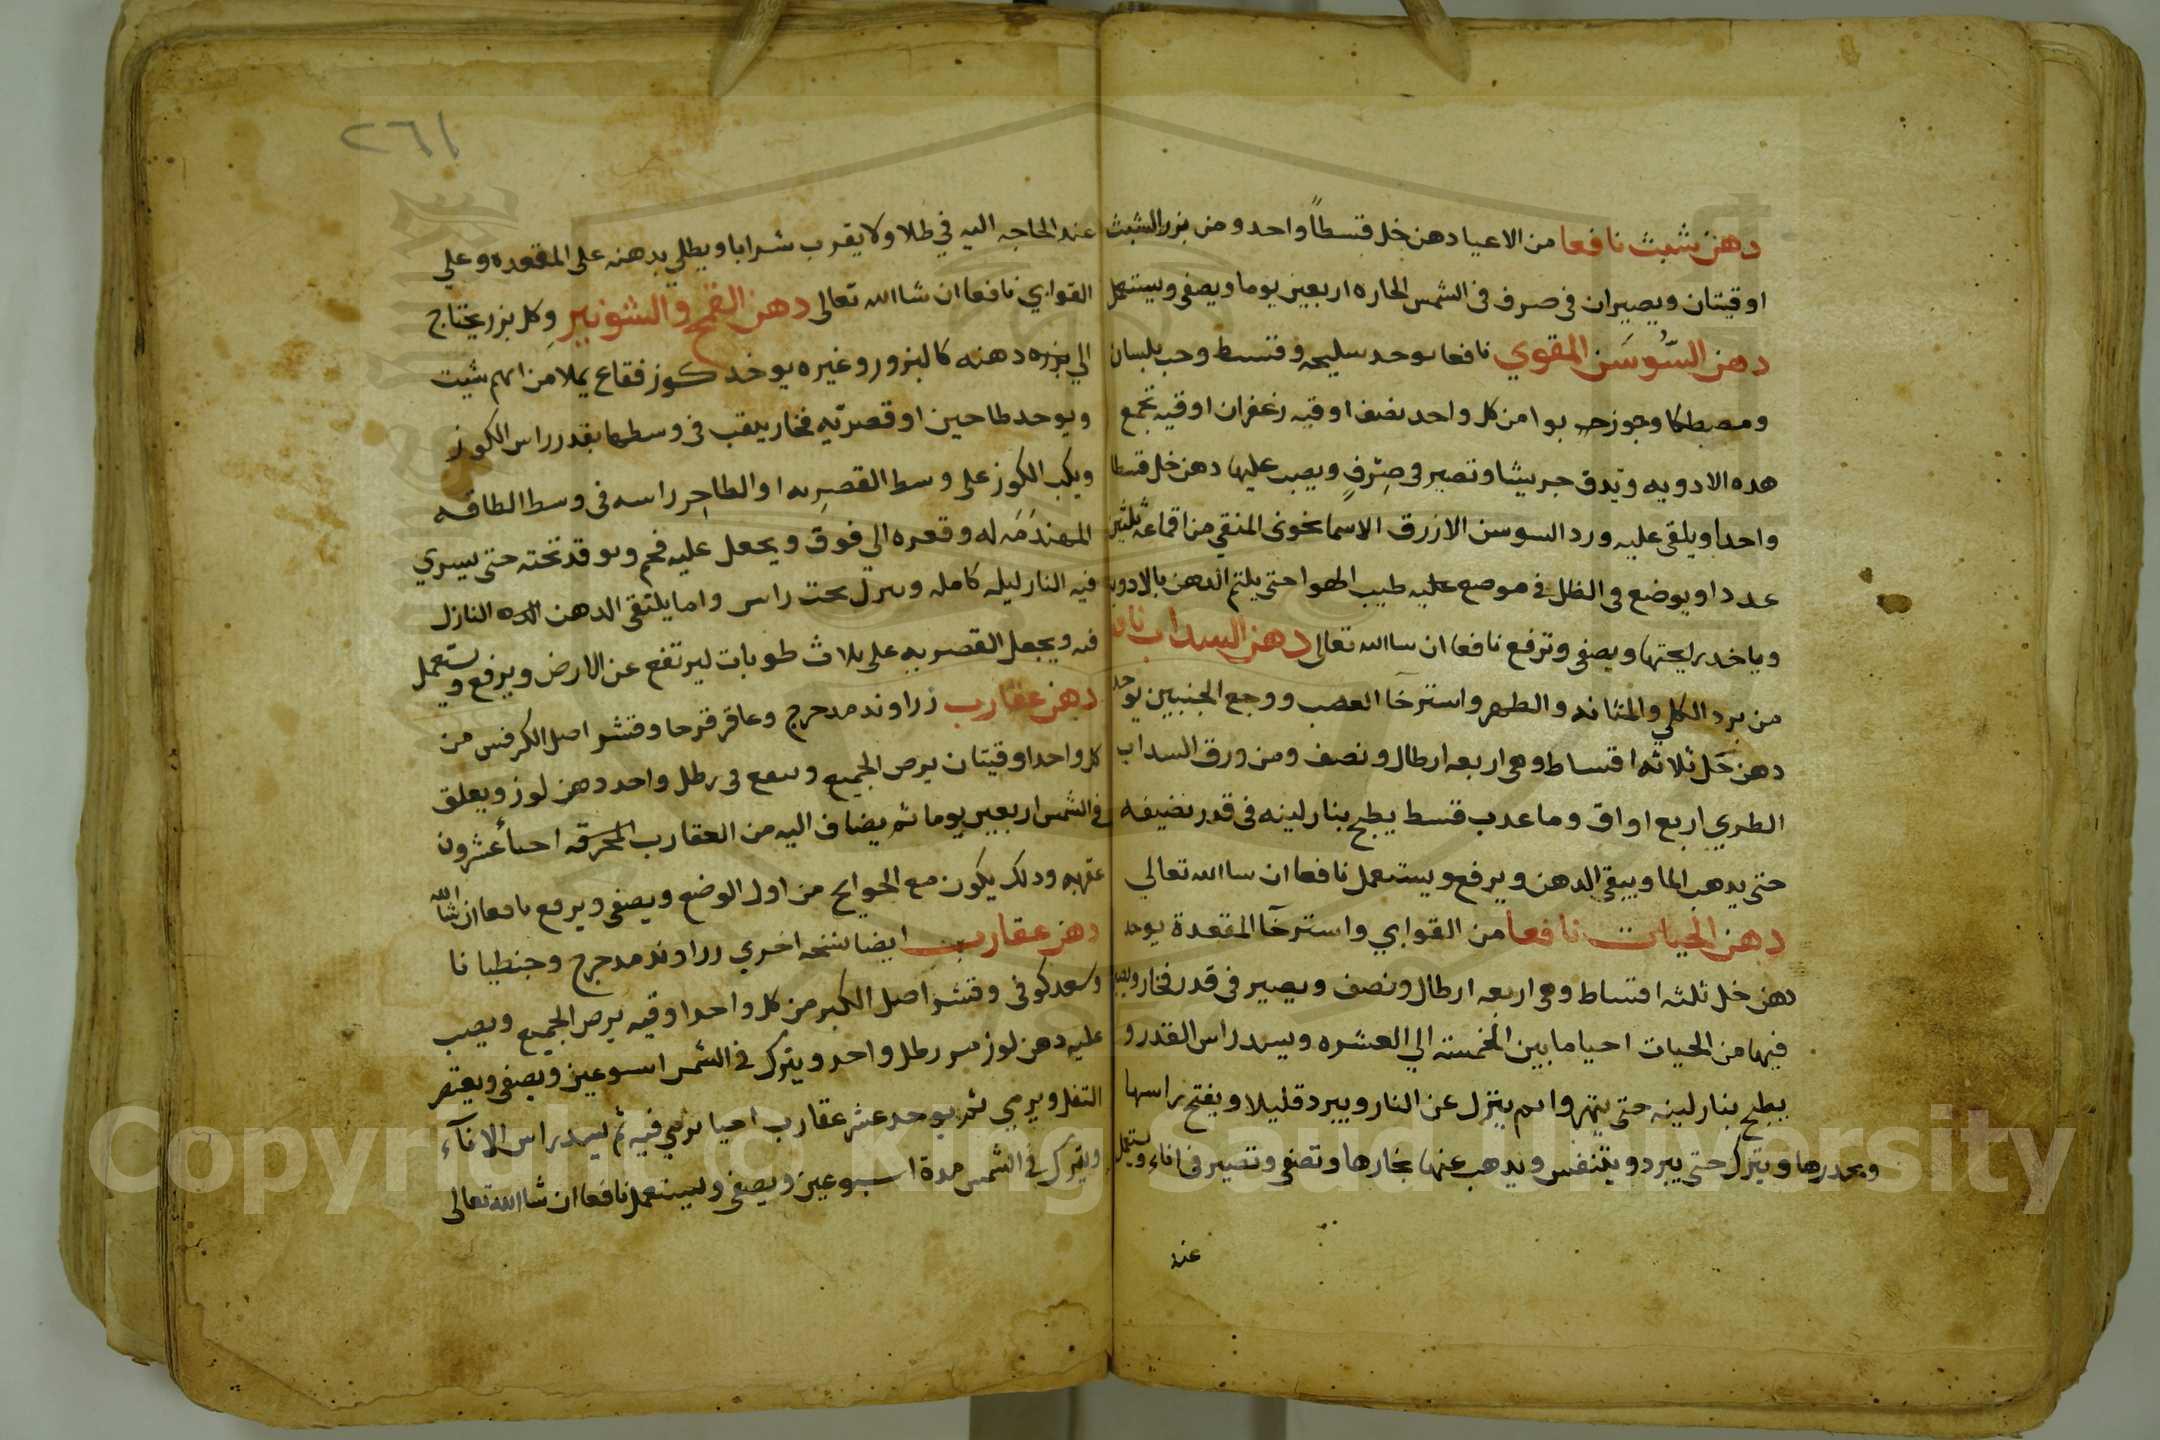 دهن شبث نافعا من الاعيا دهن خل قسطاً واحد ومن بزر الشبث
اوقيتان ويصيران فى صرف فى الشمس الحاره اربعين يوما ويصفى ويستعمل
دهن السُّوسَن المقوي نافعا يوحد سليحه وقسط وحب بلسان
ومصطكا وجوز بوا من كل واحد نصف اوقيه زعفران اوقيه تجمع
هده الادويه وتدق جريشا وتصير فى صرف ويصب عليها دهن خل قسطا
واحدا ويلقى عليه ورد السوسن الازرق الاسمانحونى المنقي من اقماعه ثلثين
عددا ويوضع فى الظل فى موضع عليه طيب الهوا حتى يلتم الدهن بالادويه
وياخد رايحتها ويصفى وترفع نافعا ان سا الله تعالى دهن السداب نافعا
من برد الكلي والمثانه والظهر واسترخآ العصب ووجع الجنبين يوحد
دهن خل ثلاثه اقساط وهى اربعه ارطال ونصف ومن ورق السداب
الطري اربع اواق وما عدب قسط يطبخ بنار لينه فى قدر نضيفه
حتى يدهب الما ويبقى الدهن ويرفع ويستعمل نافعا ان سا الله تعالي
دهن الحيات نافعا من القوابي واسترخآ المقعدة يوحد
دهن خل ثلثه اقساط وهى اربعه ارطال ونصف ويصير فى قدر فخار
فيها من الحيات احيا ما بين الخمسه الي العشره ويسد راس القدر و
يطبخ بنار لينه حتى يتهروا ثم ينزل عن النار ويبرد قليلا ويفتح راسها
ويحدرها ويترك حتى يبرد ويتنفس ويدهب عنها بخارها وتصفى وتصير فى اناء ويستعمل
عند
٢٦١
عند الحاجه اليه فى طلا ولا يقرب شرابا ويطلي بدهنه على المقعده وعلي
القوابي نافعا ان شا الله تعالى دهن القمح والشونيز وكل بزر يحتاج
الي بزره دهنه كالبزور وغيره يوخد كوز فقاع يملا من ايهم شيت
ويوحد طاحين او قصريه فخار ينقب فى وسطها بقدر راس الكوز
ويكب الكوز على وسط القصريه او الطاجن راسه فى وسط الطاقه
المهندمه له وقعره الي فوق ويجعل عليه فحم ويوقد تحته حتى يسري
فيه النار ليله كامله وينزل تحت راس وانا يلتقى الدهن النازل
فيه ويجعل القصريه على ثلاث طوبات ليرتفع عن الارض ويرفع ويستعمل
دهن عقارب زراوند مدحرج وعاقر قرحا وقشر اصل الكرفس من
كل واحد اوقيتان يرض الجميع وينقع فى رطل واحد دهن لوز ويعلق
فى الشمس اربعين يوما ثم يضاف اليه من العقارب المحرقه احيا عشرون
عقربه ودلك يكون مع الحوايج من اول الوضع ويصفى ويرفع نافعا ان شا الله
دهن عقارب ايضا نسخه اخري زراوند مدحرج وجنطيانا
وسعد كوفى وقشر اصل الكبر من كل واحد اوقيه يرض الجميع ويصب
عليه دهن لوز مر رطل واحد ويترك فى الشمس اسبوعين ويصفى ويعتصر
التفل ويرمي ثم يوحد عشر عقارب احيا يرمي فيه ثم يسد راس الانآء
ويترك فى الشمس مدة اسبوعين ويصفى ويستعمل نافعا ان شا الله تعالى
Copyright © King Saud University